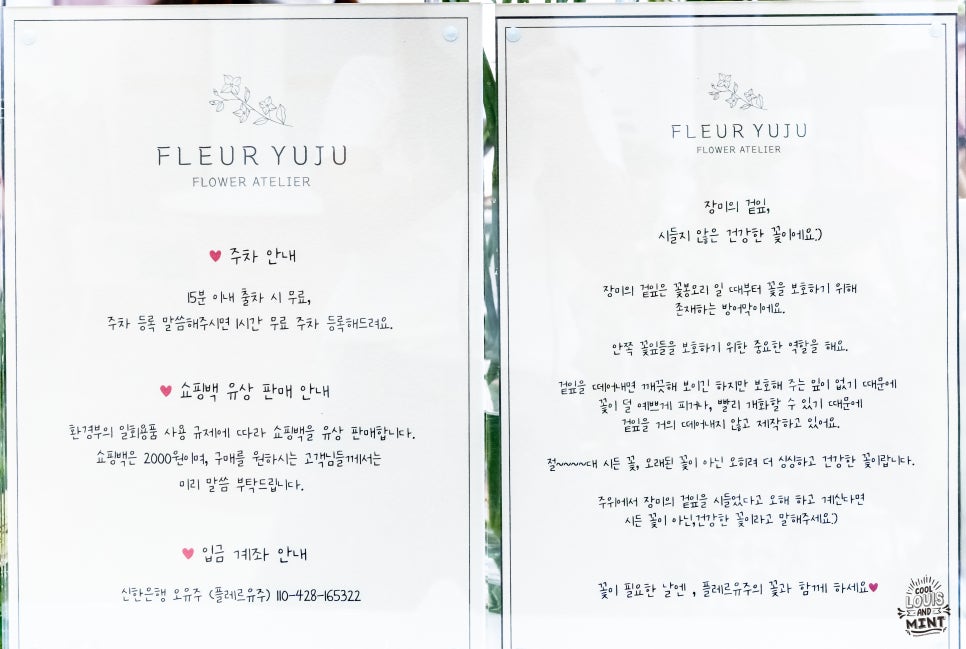 FLEUR YUJU
FLOWER ATELIER
♥ 주차 안내
15분 이내 출차 시 무료,
주차 등록 말씀해주시면 1시간 무료 주차 등록해드려요.
♥ 쇼핑백 유상 판매 안내
환경부의 일회용품 사용 규제에 따라 쇼핑백을 유상 판매합니다.
쇼핑백은 2000원이며, 구매를 원하시는 고객님들께서는
미리 말씀 부탁드립니다.
♥ 입금 계좌 안내
신한은행 오유주 (플레르유주) 110-428-165322
FLEUR YUJU
FLOWER ATELIER
장미의 겉잎,
시들지 않은 건강한 꽃이에요:)
장미의 겉잎은 꽃봉오리 일 때부터 꽃을 보호하기 위해
존재하는 방어막이에요.
안쪽 꽃잎들을 보호하기 위한 중요한 역할을 해요.
겉잎을 떼어내면 깨끗해 보이긴 하지만 보호해 주는 잎이 없기 때문에
꽃이 덜 예쁘게 피거나, 빨리 개화할 수 있기 때문에
겉잎을 거의 떼어내지 않고 제작하고 있어요.
절~~~~대 시든 꽃, 오래된 꽃이 아닌 오히려 더 싱싱하고 건강한 꽃이랍니다.
주위에서 장미의 겉잎을 시들었다고 오해 하고 계신다면
시든 꽃이 아닌,건강한 꽃이라고 말해주세요:)
꽃이 필요한 날엔 , 플레르유주의 꽃과 함께 하세요♥
COOL
LOUIS
AND
MINT